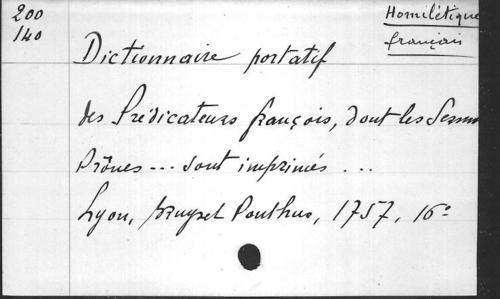 200
140
Homilétique
français
Dictionnaire portatif
des Prédicateurs françois, dont les Sermo
Prônes --- sont imprimés ...
Lyon, Bruyset Ponthus, 1757, 16°